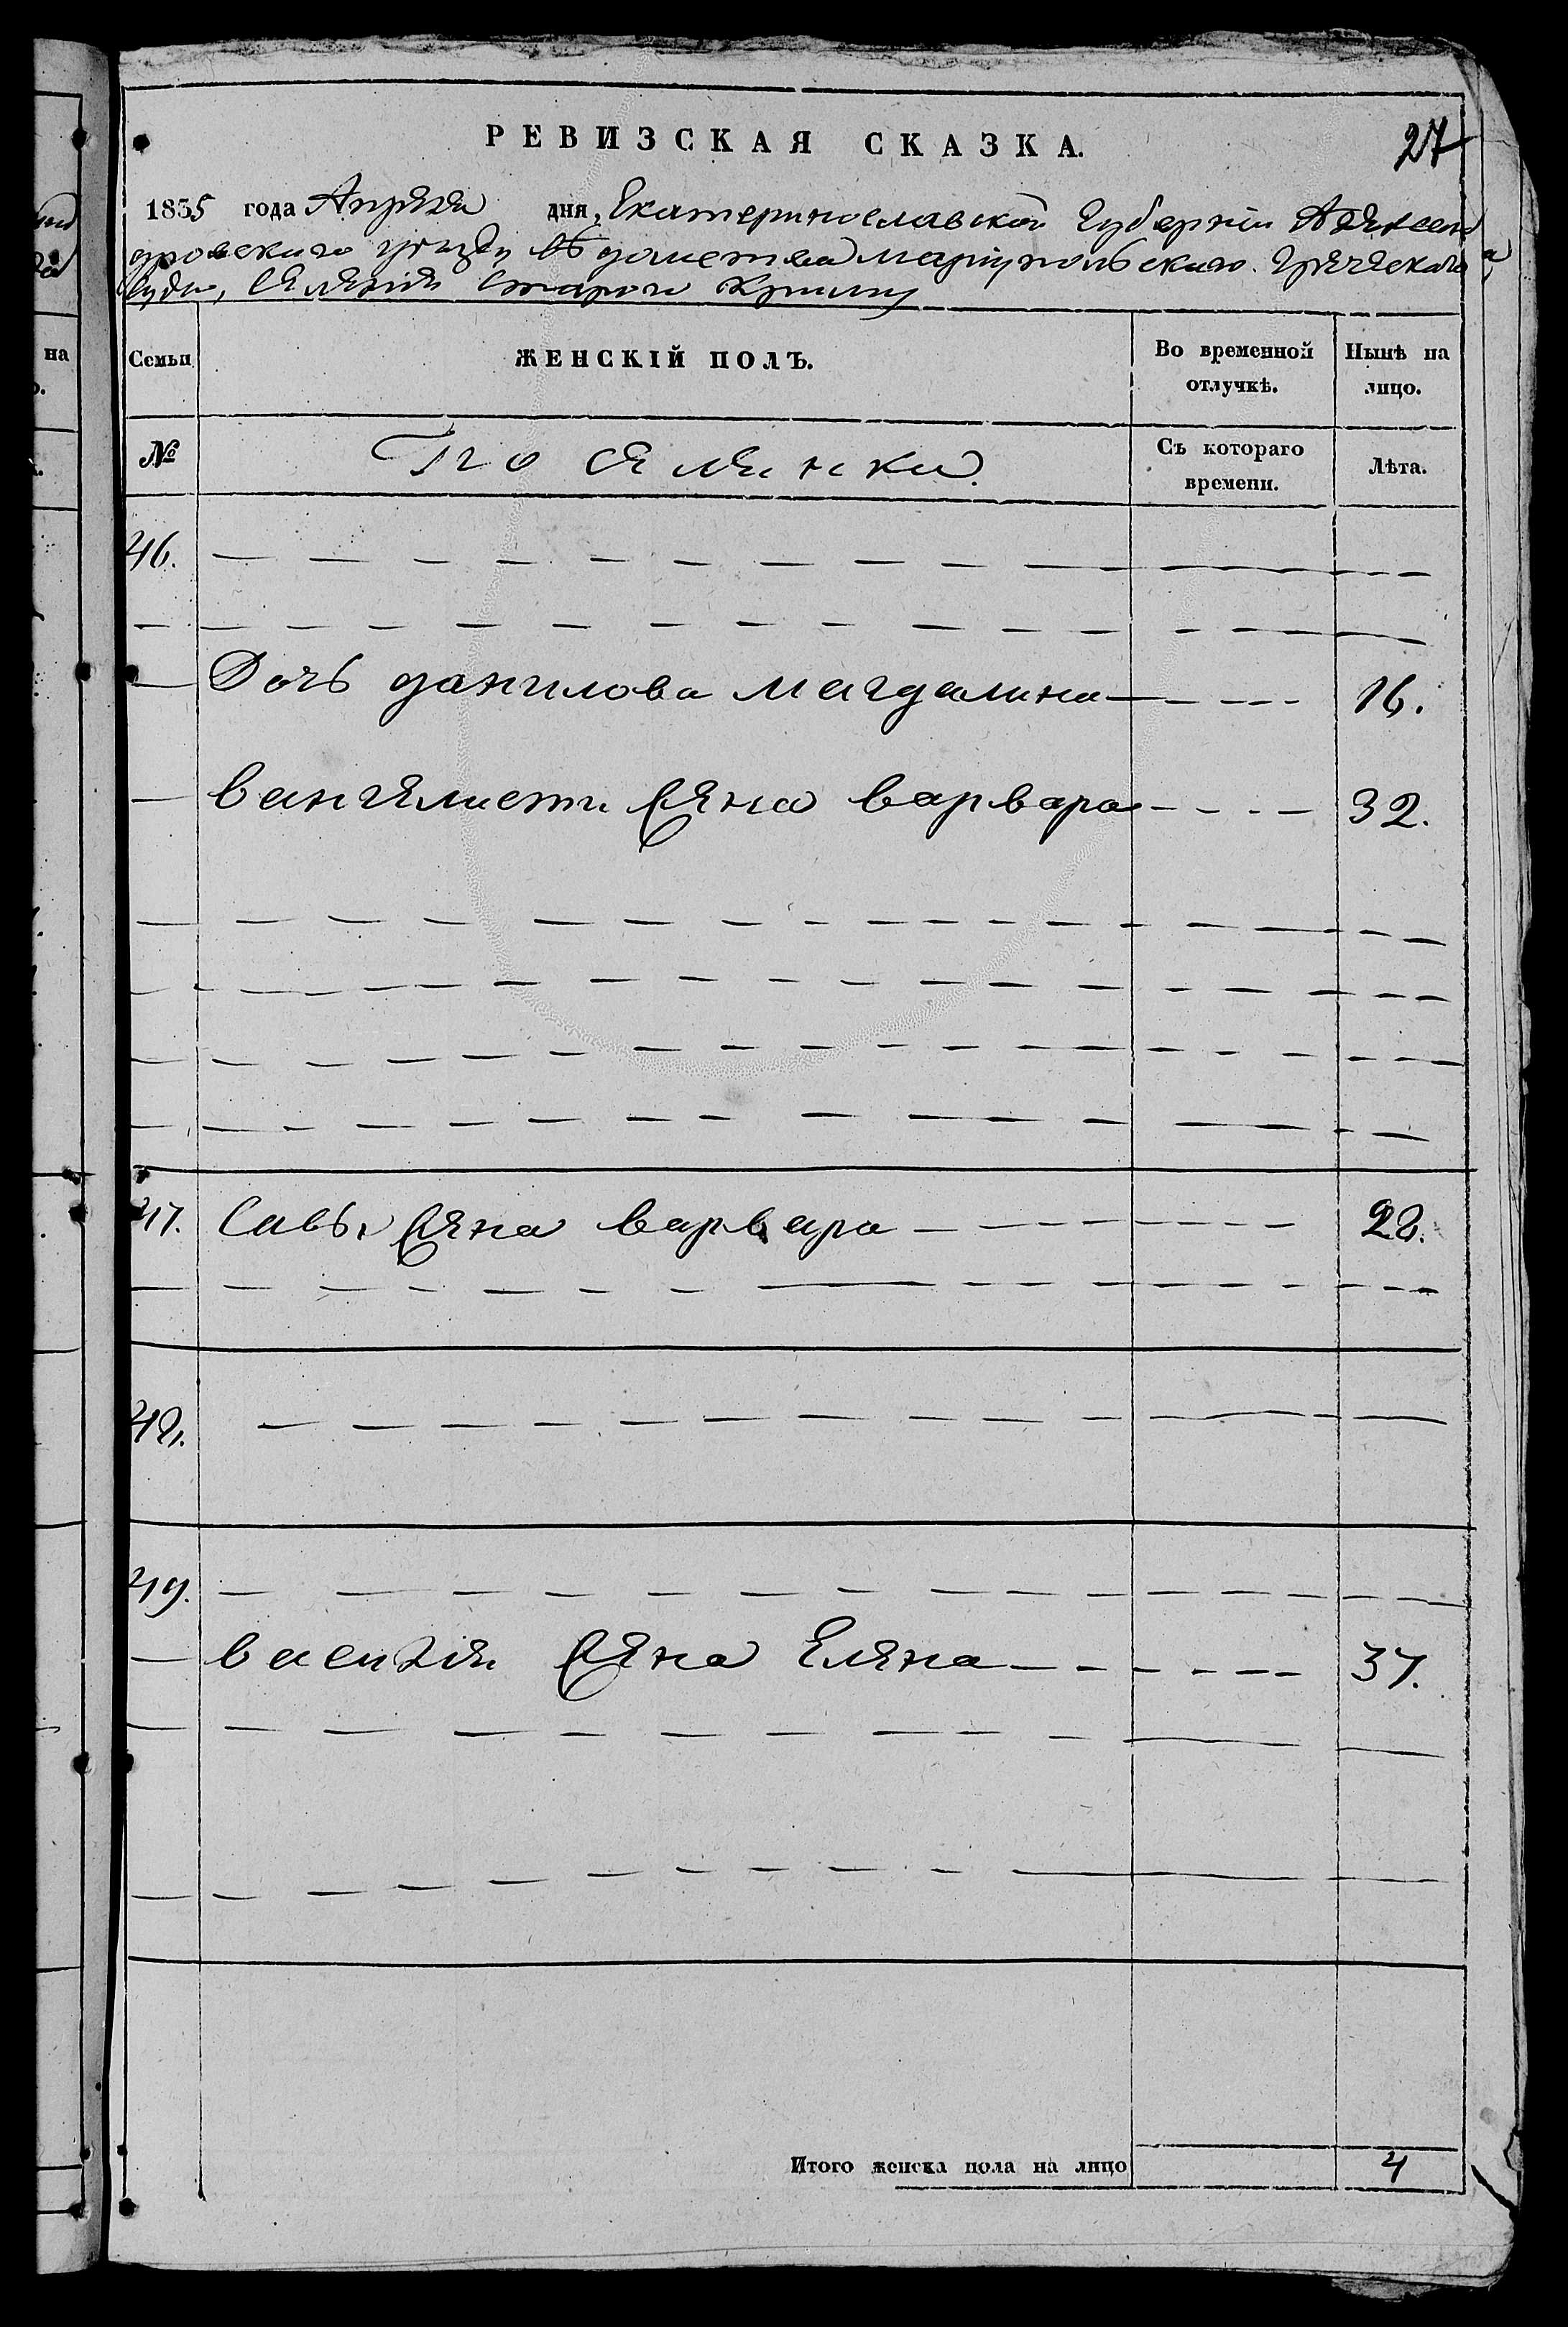 РЕВИЗСКАЯ СКАЗКА.
27
1835 года Апреля дня, Екатеринославской Губернии Александ
ровского уезда Ведомства Мариупольского Греческаго
суда, Селения Старого Крыму
Семьи
ЖЕНСКІЙ ПОЛЪ.
Во временной отлучкѣ.
Нынѣ на лицо.
№
Поселянки.
Съ котораго времени.
Лѣта.
46. — — — — — — — — — — —
— — — — — — — — — — —
— Дочь данилова магдалина — — — — 16.
— вангелисти жена варвара — — — — 32.
— — — — — — — — — — —
— — — — — — — — — — —
— — — — — — — — — — —
— — — — — — — — — — —
47. Савы жена варвара — — — — — — 28.
— — — — — — — — — — —
48. — — — — — — — — — — —
49. — — — — — — — — — — —
— василия жена Елена — — — — — — 37.
— — — — — — — — — — —
— — — — — — — — — — —
Итого женска пола на лицо 4